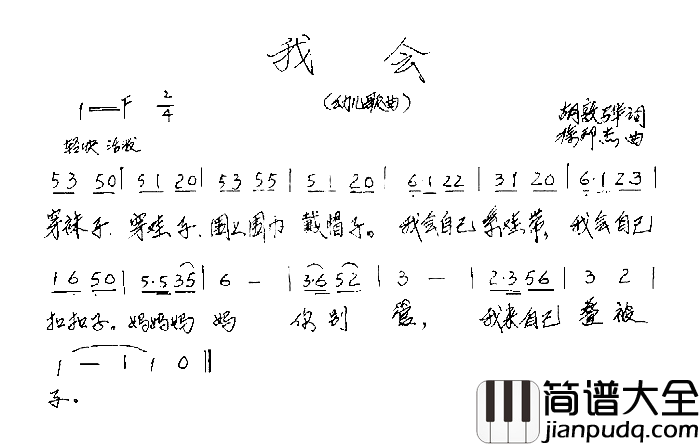 我 会
(幼儿歌曲)
1=F 2/4
胡敦骅词
徐邦杰曲
轻快 活泼
53 50 | 51 20 | 53 55 | 51 20 | 6·1 22 | 31 20 | 6·1 23 |
穿袜子、穿鞋子、围上围巾 戴帽子。我会自己系鞋带,我会自己
16 50 | 5·5 35 | 6 — | 3·6 52 | 3 — | 2·3 56 | 3 2 |
扣扣子。妈妈妈 妈 你别 管, 我来自己 叠被
1 — | 1 0 ‖
子。
简谱大全
jianpudq.com